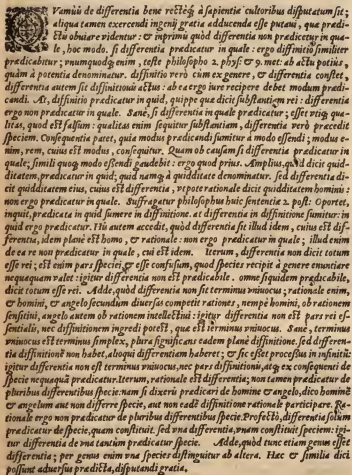 Quamuis de differentia bene recteq; à sapientiæ cultoribus disputatum sit;
aliqua tamen exercendi ingenij gratia adducenda esse putaui, quæ prædi-
ctis obuiare videntur: & inprimis quòd differentia non prædicetur in qua-
le, hoc modo. si differentia prædicatur in quale: ergo diffinitio similiter
prædicabitur; vnumquodq; enim, teste philosopho 2. phys. & 9. met: ab actu potius,
quàm à potentia denominatur. diffinitio verò cum ex genere, & differentia constet,
differentia autem sit diffinitionis actus: ab ea ergo iure recipere debet modum prædi-
candi. At, diffinitio prædicatur in quid, quippe quæ dicit substantiam rei: differentia
ergo non prædicatur in quale. Sanè, si differentia in quale prædicatur; esset vtiq; qua-
litas, quod est falsum: qualitas enim sequitur substantiam, differentia verò præcedit
speciem. Consequentia patet, quia modus prædicandi sumitur à modo essendi; modus e-
nim, rem, cuius est modus, consequitur. Quam ob causam si differentia prædicatur in
quale; simili quoq; modo essendi gaudebit: ergo quod prius. Amplius, quod dicit quid-
ditatem, prædicatur in quid; quid namq; à quidditate denominatur. sed differentia di-
cit quidditatem eius, cuius est differentia, vtpote rationale dicit quidditatem hominis:
non ergo prædicatur in quale. Suffragatur philosophus huic sententiæ 2. post: Oportet,
inquit, prædicata in quid sumere in diffinitione. at differentia in diffinitione sumitur: in
quid ergo prædicatur. His autem accedit, quòd differentia sit illud idem, cuius est dif-
ferentia, idem planè est homo, & rationale: non ergo prædicatur in quale; illud enim
de ea re non prædicatur in quale, cui est idem. Iterum, differentia non dicit totum
esse rei; est enim pars speciei, & esse confusum, quod species recipit à genere enuntiare
nequaquam valet: igitur differentia non est prædicabile. omne siquidem prædicabile,
dicit totum esse rei. Adde, quòd differentia non sit terminus vniuocus; rationale enim,
& homini, & angelo secundum diuersas competit rationes, nempè homini, ob rationem
sensitiui, angelo autem ob rationem intellectiui: igitur differentia non est pars rei es-
sentialis, nec diffinitionem ingredi potest, quæ est terminus vniuocus. Sanè, terminus
vniuocus est terminus simplex, plura significans eadem planè diffinitione. sed differen-
tia diffinitionē non habet, alioqui differentiam haberet; & sic esset processus in infinitū:
igitur differentia non est terminus vniuocus, nec pars diffinitionis, atq; ex consequenti de
specie nequaquā prædicatur. Iterum, rationale est differentia; non tamen prædicatur de
pluribus differentibus specie. nam si dixeris prædicari de homine & angelo, dico hominē
& angelum aut non differre specie, aut non eadē diffinitione rationale participare. Ra-
tionale ergo non prædicatur de pluribus differentibus specie. Profectò, differentia solum
prædicatur de specie, quam constituit. sed vna differentia, vnam constituit speciem: igi-
tur differentia de vna tantùm prædicatur specie. Adde, quòd tunc etiam genus esset
differentia; per genus enim vna species distinguitur ab altera. Hæc & similia dici
possunt aduersus prædicta, disputandi gratia.